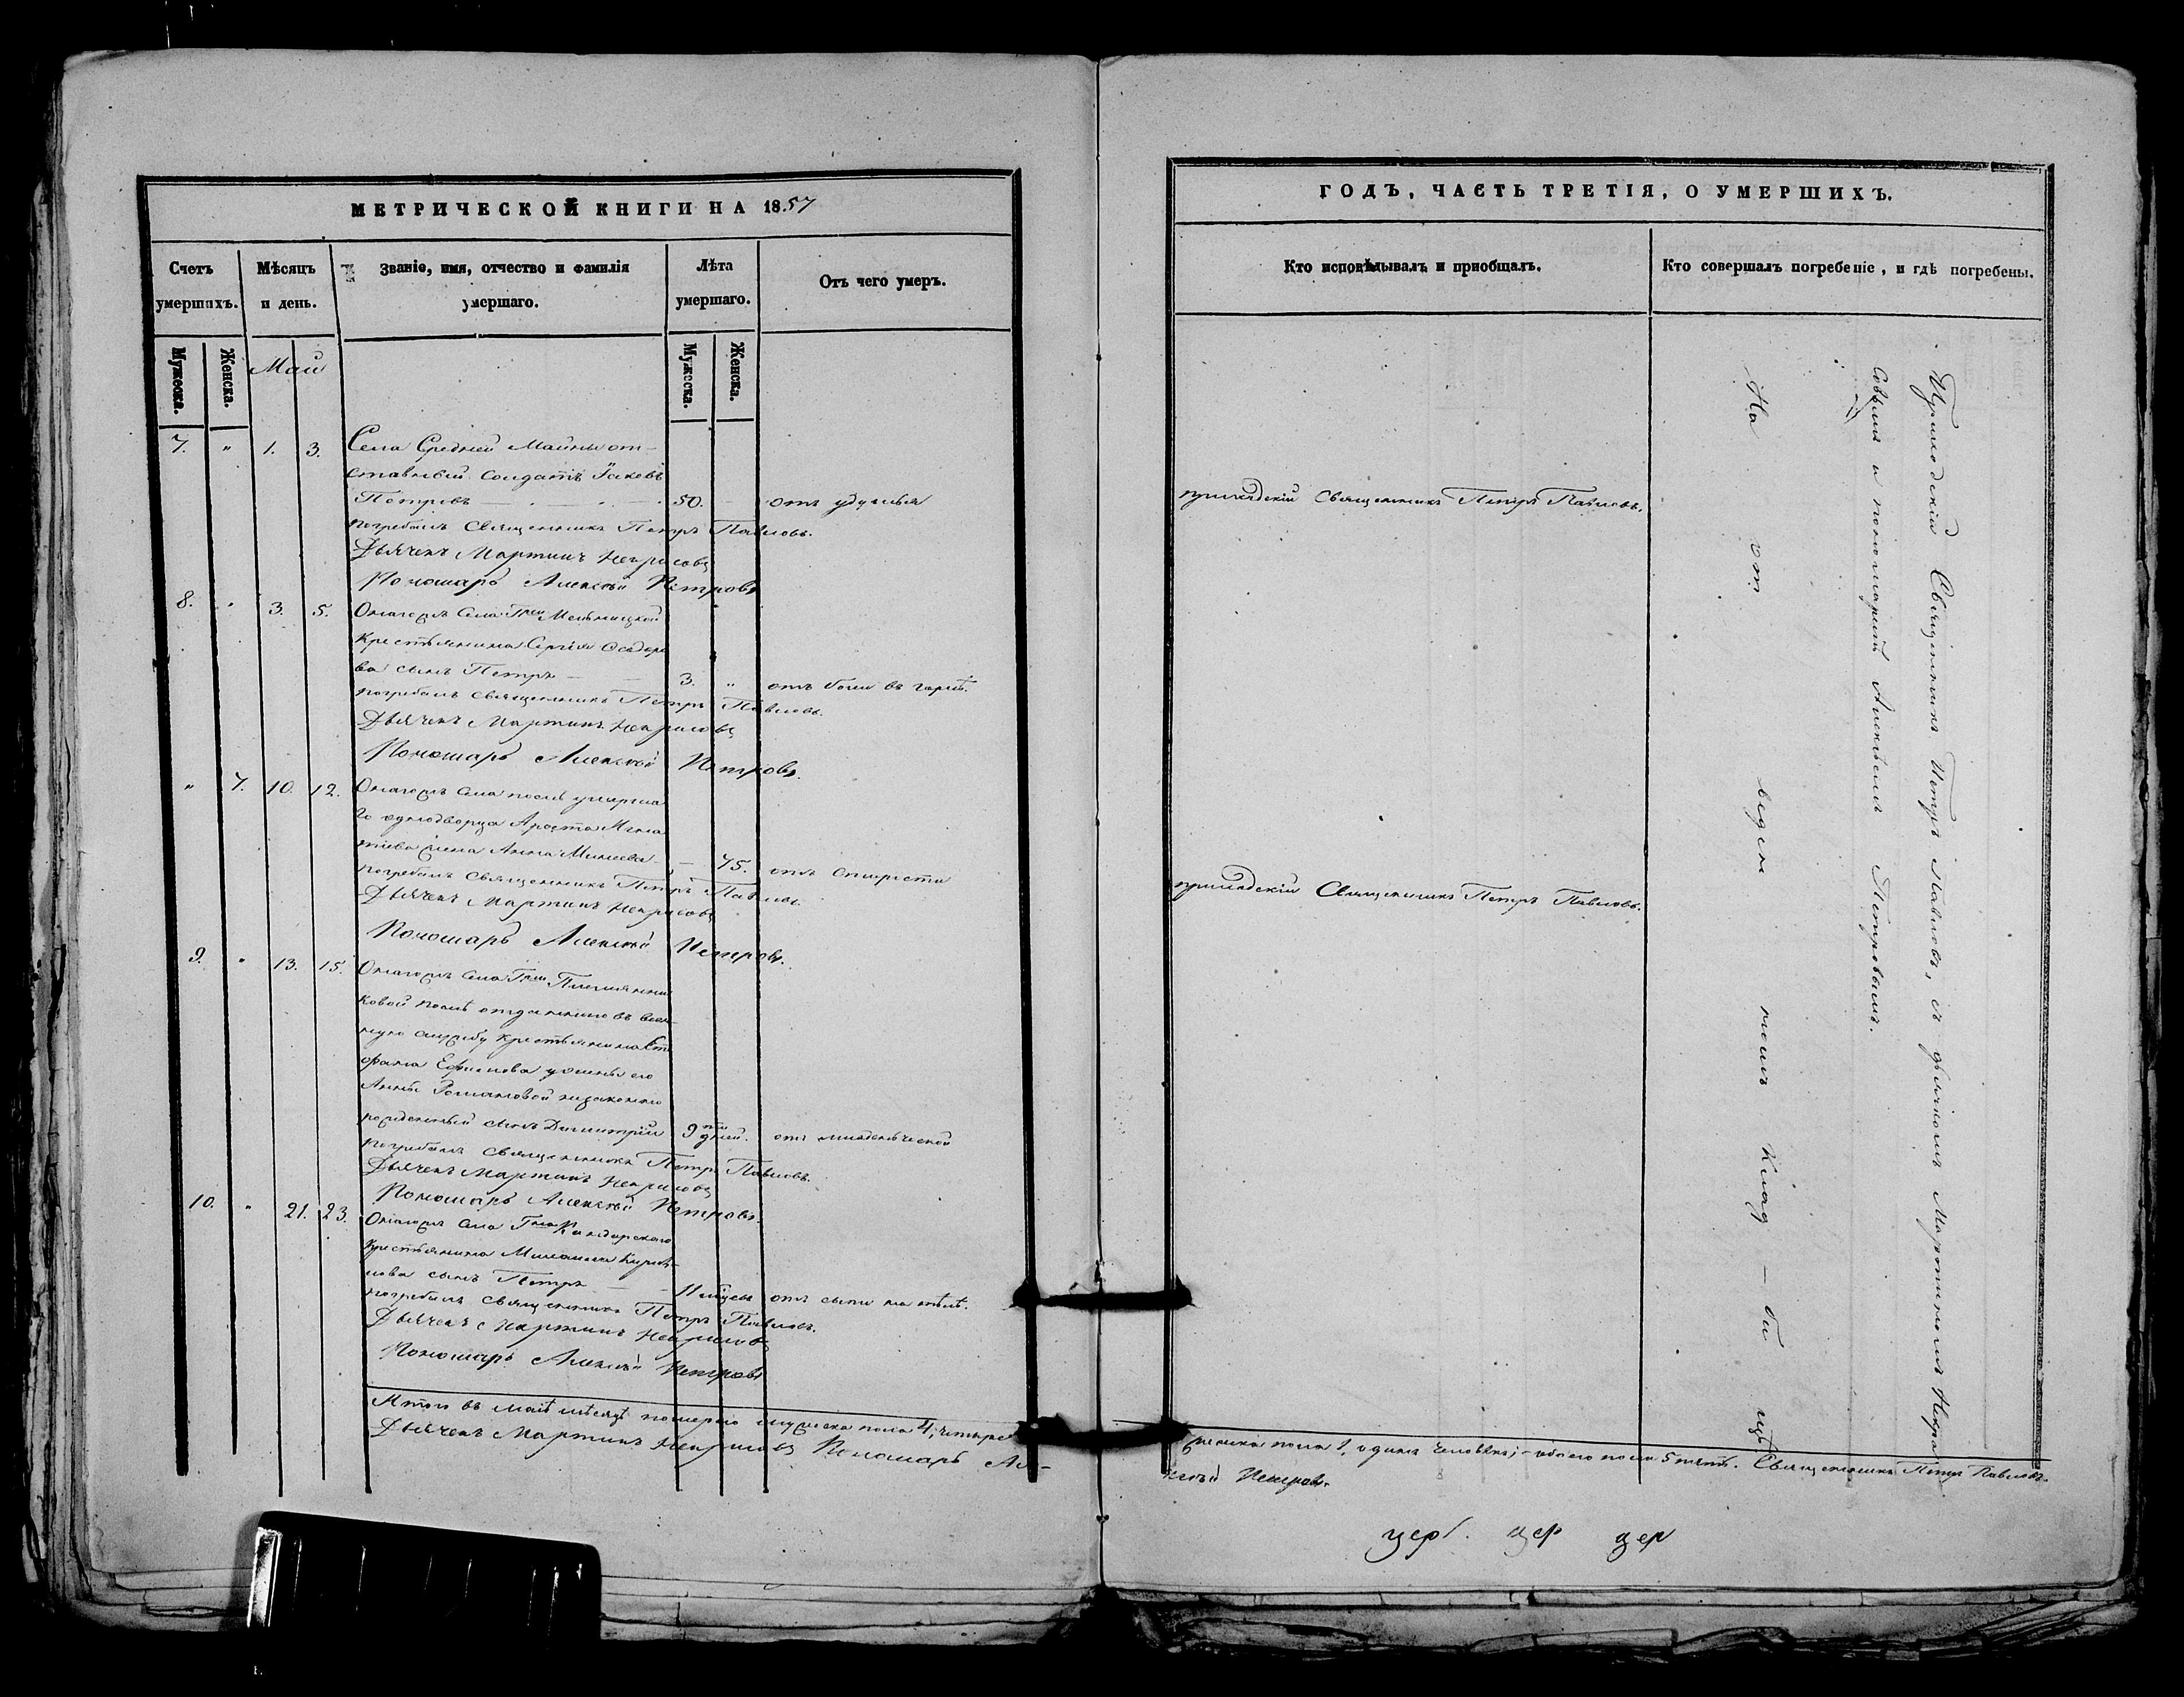 МЕТРИЧЕСКОЙ КНИГИ НА 1857
Счетъ умершихъ.
Мѣсяцъ и день.
Званіе, имя, отчество и фамилія умершаго.
Лѣта умершаго.
Отъ чего умеръ.
Мужеска.
Женска.
Май
Мужеска.
Женска.
7. " 1. 3. Села Средней Майны от-
ставный солдатъ Іаковъ
Петровъ 50. отъ удушья
погребалъ Священникъ Петръ Павловъ.
Дьячекъ Мартинъ Некрасовъ
Пономарь Алексѣй Петровъ
8. " 3. 5. Онагожъ Села Гжи Мельницкой
Крестьянина Сергія Ѳедоро
ва сынъ Петръ 3. " отъ боли въ горлѣ.
погребалъ священникъ Петръ Павловъ.
Дьячекъ Мартинъ Некрасовъ
Пономарь Алексѣй Петровъ.
" 7. 10. 12. Онагожъ Села послѣ умерша
го однодворца
жена Анна 75. отъ старости
погребалъ Священникъ Петръ Павловъ.
Дьячекъ Мартинъ Некрасовъ
Пономарь Алексѣй Петровъ.
9. " 13. 15. Онагожъ Села Гжи Племянни
ковой послѣ отданнаго въ воен-
ную службу крестьянина
Ефимова у жены его
Анны Романовой незаконно
рожденный сынъ Димитрій 9ти дней. отъ младенческой
погребалъ Священникъ Петръ Павловъ.
Дьячекъ Мартинъ Некрасовъ
Пономарь Алексѣй Петровъ.
10. " 21. 23. Онагожъ Села Гна
Крестьянина Михаила Кирил-
лова сынъ Петръ 11 отъ сыпи на тѣлѣ.
погребалъ Священникъ Петръ Павловъ.
Дьячекъ Мартинъ Некрасовъ
Пономарь Алексѣй Петровъ
Итого въ маѣ мѣсяцѣ померло мужеска пола 4, четыре
Дьячекъ Мартинъ Некрасовъ Пономарь Але-
ГОДЪ, ЧАСТЬ ТРЕТІЯ, О УМЕРШИХЪ.
Кто исповѣдывалъ и приобщалъ.
Кто совершалъ погребеніе, и гдѣ погребены.
приходскій Священникъ Петръ Павловъ.
приходскій Священникъ Петръ Павловъ.
Приходскій Священникъ Петръ Павловъ, съ дьячкомъ Мартиномъ Некра
совымъ и пономаремъ Алексѣемъ Петровымъ.
На от веден номъ Клад – би щѣ
женска пола 1, одинъ человѣкъ; – обоего пола 5 пять. Священникъ Петръ Павловъ.
ксѣй Петровъ.
церк. цер цер